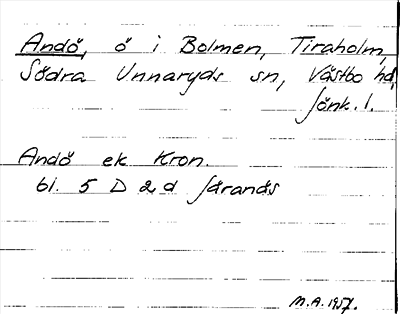 Andö, ö i Bolmen, Tiraholm,
Södra Unnaryds sn, Västbo hd,
Jönk. l.
Andö ek Kron.
bl. 5 D 2 d Färanäs
M.A. 1957.